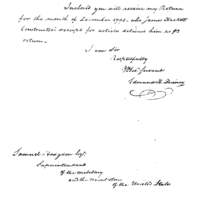 Inclosed you will receive my Return
for the month of December 1798, also James Hackett
Contractor's receipt for articles delivered him as Pr
return.
I am Sir
Respectfully
Yr Obt. Servant
Samuel Hodgdon Esqr.
Superintendant
of the Military
and the Naval Stores
of the United States